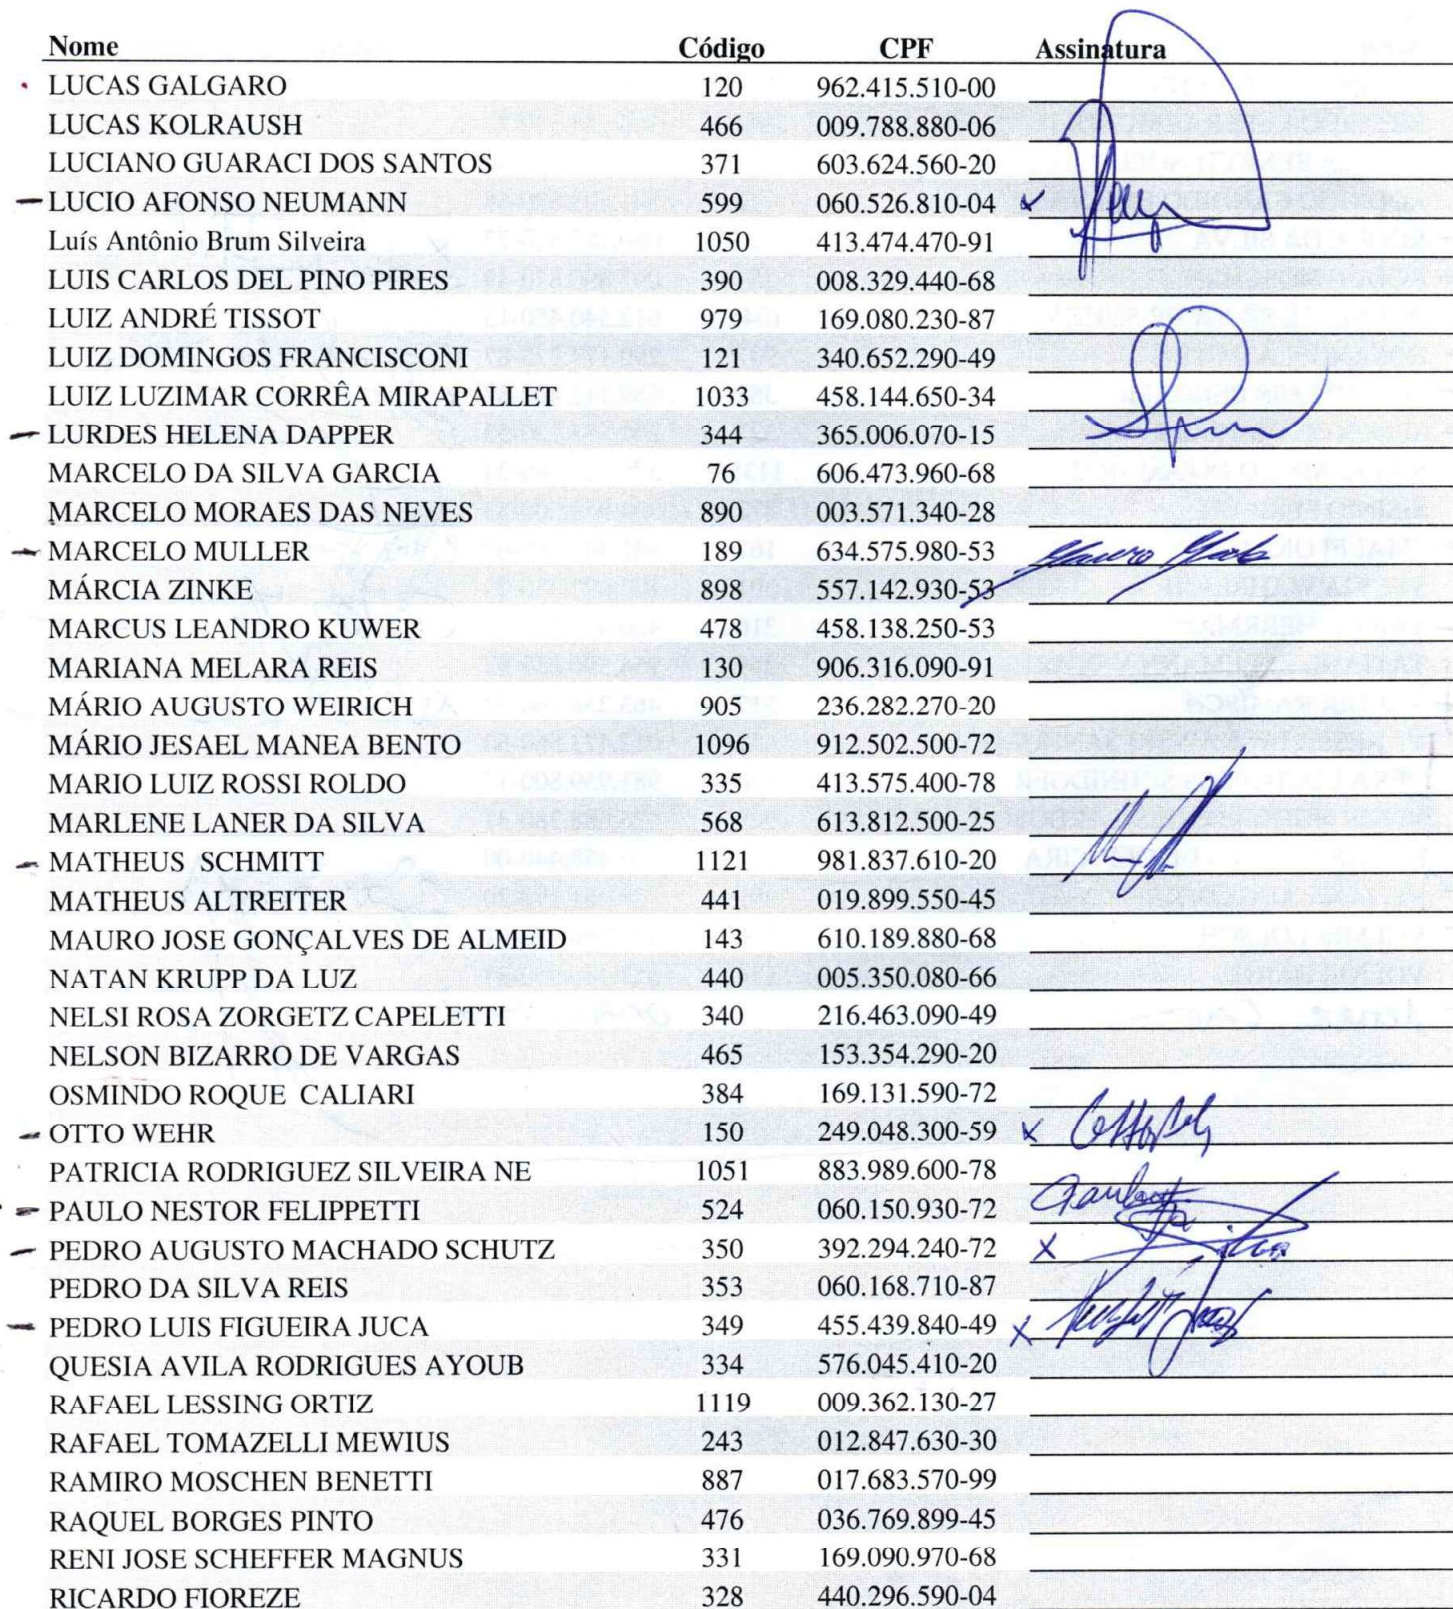 Nome Código CPF Assinatura
LUCAS GALGARO 120 962.415.510-00
LUCAS KOLRAUSH 466 009.788.880-06
LUCIANO GUARACI DOS SANTOS 371 603.624.560-20
LUCIO AFONSO NEUMANN 599 060.526.810-04 x
Luís Antônio Brum Silveira 1050 413.474.470-91
LUIS CARLOS DEL PINO PIRES 390 008.329.440-68
LUIZ ANDRÉ TISSOT 979 169.080.230-87
LUIZ DOMINGOS FRANCISCONI 121 340.652.290-49
LUIZ LUZIMAR CORRÊA MIRAPALLET 1033 458.144.650-34
LURDES HELENA DAPPER 344 365.006.070-15
MARCELO DA SILVA GARCIA 76 606.473.960-68
MARCELO MORAES DAS NEVES 890 003.571.340-28
MARCELO MULLER 189 634.575.980-53
MÁRCIA ZINKE 898 557.142.930-53
MARCUS LEANDRO KUWER 478 458.138.250-53
MARIANA MELARA REIS 130 906.316.090-91
MÁRIO AUGUSTO WEIRICH 905 236.282.270-20
MÁRIO JESAEL MANEA BENTO 1096 912.502.500-72
MARIO LUIZ ROSSI ROLDO 335 413.575.400-78
MARLENE LANER DA SILVA 568 613.812.500-25
MATHEUS SCHMITT 1121 981.837.610-20
MATHEUS ALTREITER 441 019.899.550-45
MAURO JOSE GONÇALVES DE ALMEID 143 610.189.880-68
NATAN KRUPP DA LUZ 440 005.350.080-66
NELSI ROSA ZORGETZ CAPELETTI 340 216.463.090-49
NELSON BIZARRO DE VARGAS 465 153.354.290-20
OSMINDO ROQUE CALIARI 384 169.131.590-72
OTTO WEHR 150 249.048.300-59 x
PATRICIA RODRIGUEZ SILVEIRA NE 1051 883.989.600-78
PAULO NESTOR FELIPPETTI 524 060.150.930-72
PEDRO AUGUSTO MACHADO SCHUTZ 350 392.294.240-72 x
PEDRO DA SILVA REIS 353 060.168.710-87
PEDRO LUIS FIGUEIRA JUCA 349 455.439.840-49 x
QUESIA AVILA RODRIGUES AYOUB 334 576.045.410-20
RAFAEL LESSING ORTIZ 1119 009.362.130-27
RAFAEL TOMAZELLI MEWIUS 243 012.847.630-30
RAMIRO MOSCHEN BENETTI 887 017.683.570-99
RAQUEL BORGES PINTO 476 036.769.899-45
RENI JOSE SCHEFFER MAGNUS 331 169.090.970-68
RICARDO FIOREZE 328 440.296.590-04